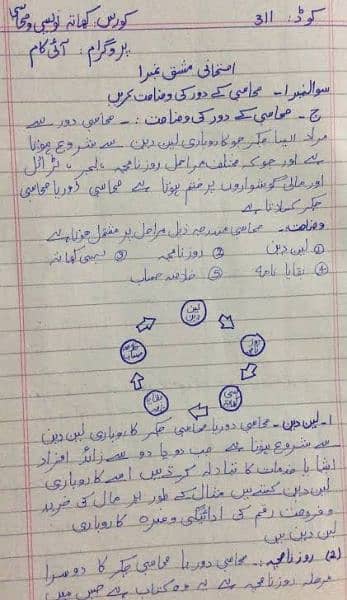 کوڈ: 311 کورس: کھاتہ نویسی و محاسبی
پروگرام: آئی کام
امتحانی مشق نمبر1
سوال نمبر1۔ محاسبی کے دور کی وضاحت کریں
ج۔ محاسبی کے دور کی وضاحت:۔ محاسبی دور سے
مراد ایسا چکر جو کاروباری لین دین سے شروع ہوتا
ہے اور جو کہ مختلف مراحل روزنامچہ، لیجر، ٹرائل
اور مالی گوشواروں پر ختم ہوتا ہے محاسبی دور یا محاسبی
چکر کہلاتا ہے
وضاحت۔ محاسبی مندرجہ ذیل مراحل پر مشتمل ہوتا ہے
① لین دین ② روزنامچہ ③ بہی کھاتہ
④ بقایا نامہ ⑤ خلاصہ حساب
لین دین
روز نامچہ
بہی کھاتہ
بقایا نامہ
خلاصہ حساب
1۔ لین دین۔ محاسبی دور یا محاسبی چکر کاروباری لین دین
سے شروع ہوتا ہے جب دو یا دو سے زائد افراد
اشیا یا خدمات کا تبادلہ کرتے ہیں اسے کاروباری
لین دین کہتے ہیں مثال کے طور پر مال کی خرید
و فروخت رقم کی ادائیگی وغیرہ کاروباری
لین دین ہیں
(2) روزنامچہ:۔ محاسبی دور یا محاسبی چکر کا دوسرا
مرحلہ روزنامچہ ہے یہ وہ کتاب ہے جس میں